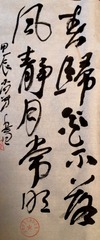 春歸花不落
風靜月常明
甲辰